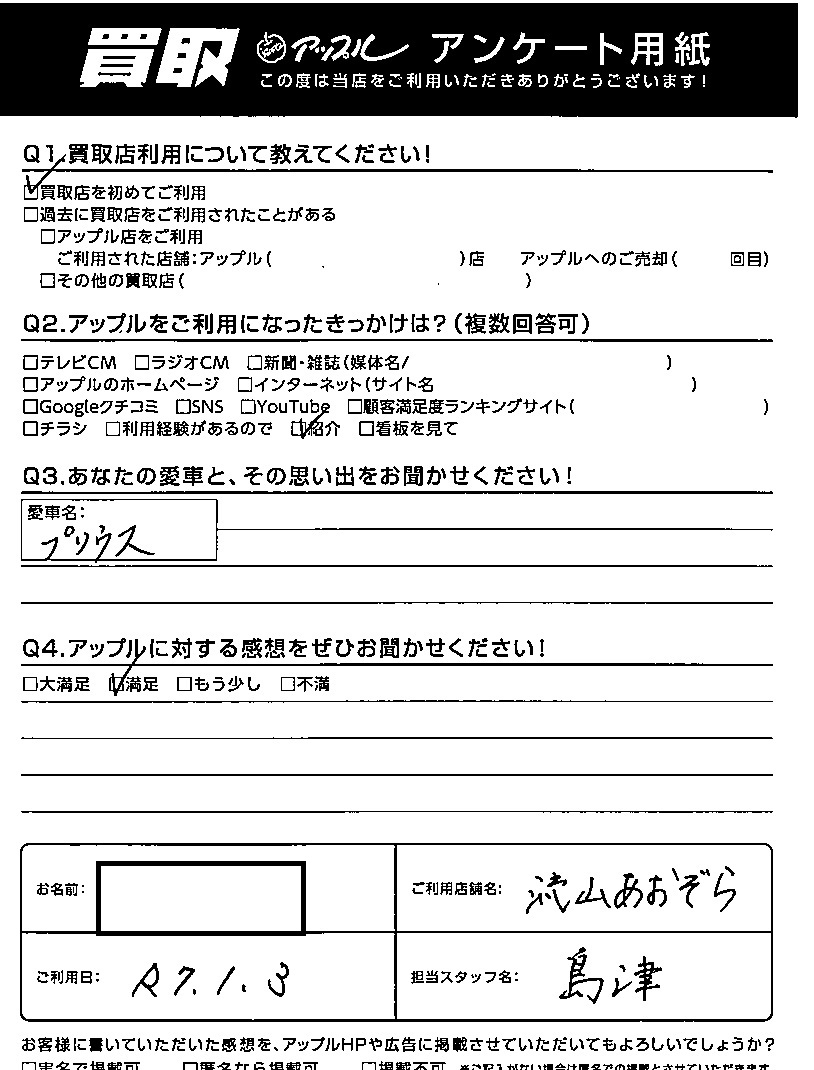 買取 アップル アンケート用紙
この度は当店をご利用いただきありがとうございます!
Q1.買取店利用について教えてください!
☑買取店を初めてご利用
□過去に買取店をご利用されたことがある
□アップル店をご利用
ご利用された店舗:アップル( )店 アップルへのご売却( 回目)
□その他の買取店( )
Q2.アップルをご利用になったきっかけは?(複数回答可)
□テレビCM □ラジオCM □新聞・雑誌(媒体名/ )
□アップルのホームページ □インターネット(サイト名 )
□Googleクチコミ □SNS □YouTube □顧客満足度ランキングサイト( )
□チラシ □利用経験があるので ☑紹介 □看板を見て
Q3.あなたの愛車と、その思い出をお聞かせください!
愛車名:
プリウス
Q4.アップルに対する感想をぜひお聞かせください!
□大満足 ☑満足 □もう少し □不満
お名前:
ご利用店舗名: 流山あおぞら
ご利用日: R7.1.3
担当スタッフ名: 島津
お客様に書いていただいた感想を、アップルHPや広告に掲載させていただいてもよろしいでしょうか?
□実名で掲載可 □匿名なら掲載可 □掲載不可 ※ご記入がない場合は匿名での掲載とさせていただきます